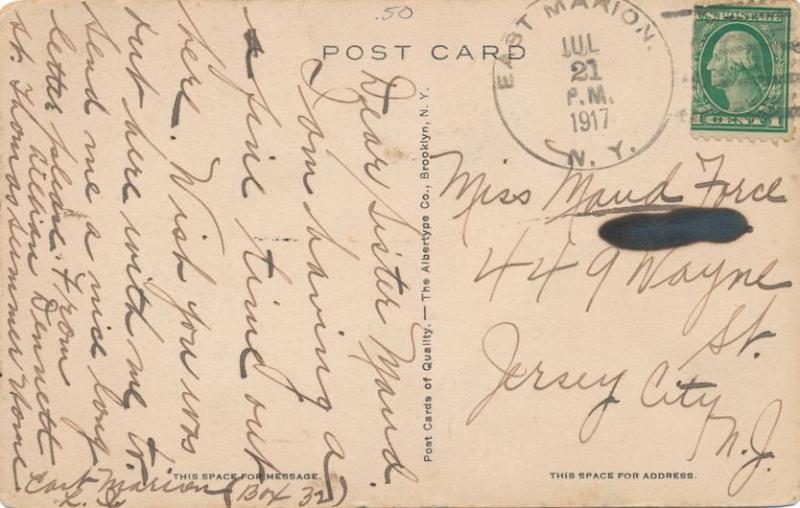 .50
POST CARD
EAST MARION.
JUL
21
P.M.
1917
N. Y.
U.S. POSTAGE
1 CENT 1
Dear Sister Maud.
I om having a
a fine time out
here. Wish you was
out here with me to
Send me a nice long
letter please. From
Lillian Dennett
St. Thomas Summer Home
East Marion (Box 32)
L. I.
Post Cards of Quality. — The Albertype Co., Brooklyn, N. Y.
Miss Maud Force
449 Wayne
St.
Jersey City
N.J.
THIS SPACE FOR MESSAGE.
THIS SPACE FOR ADDRESS.